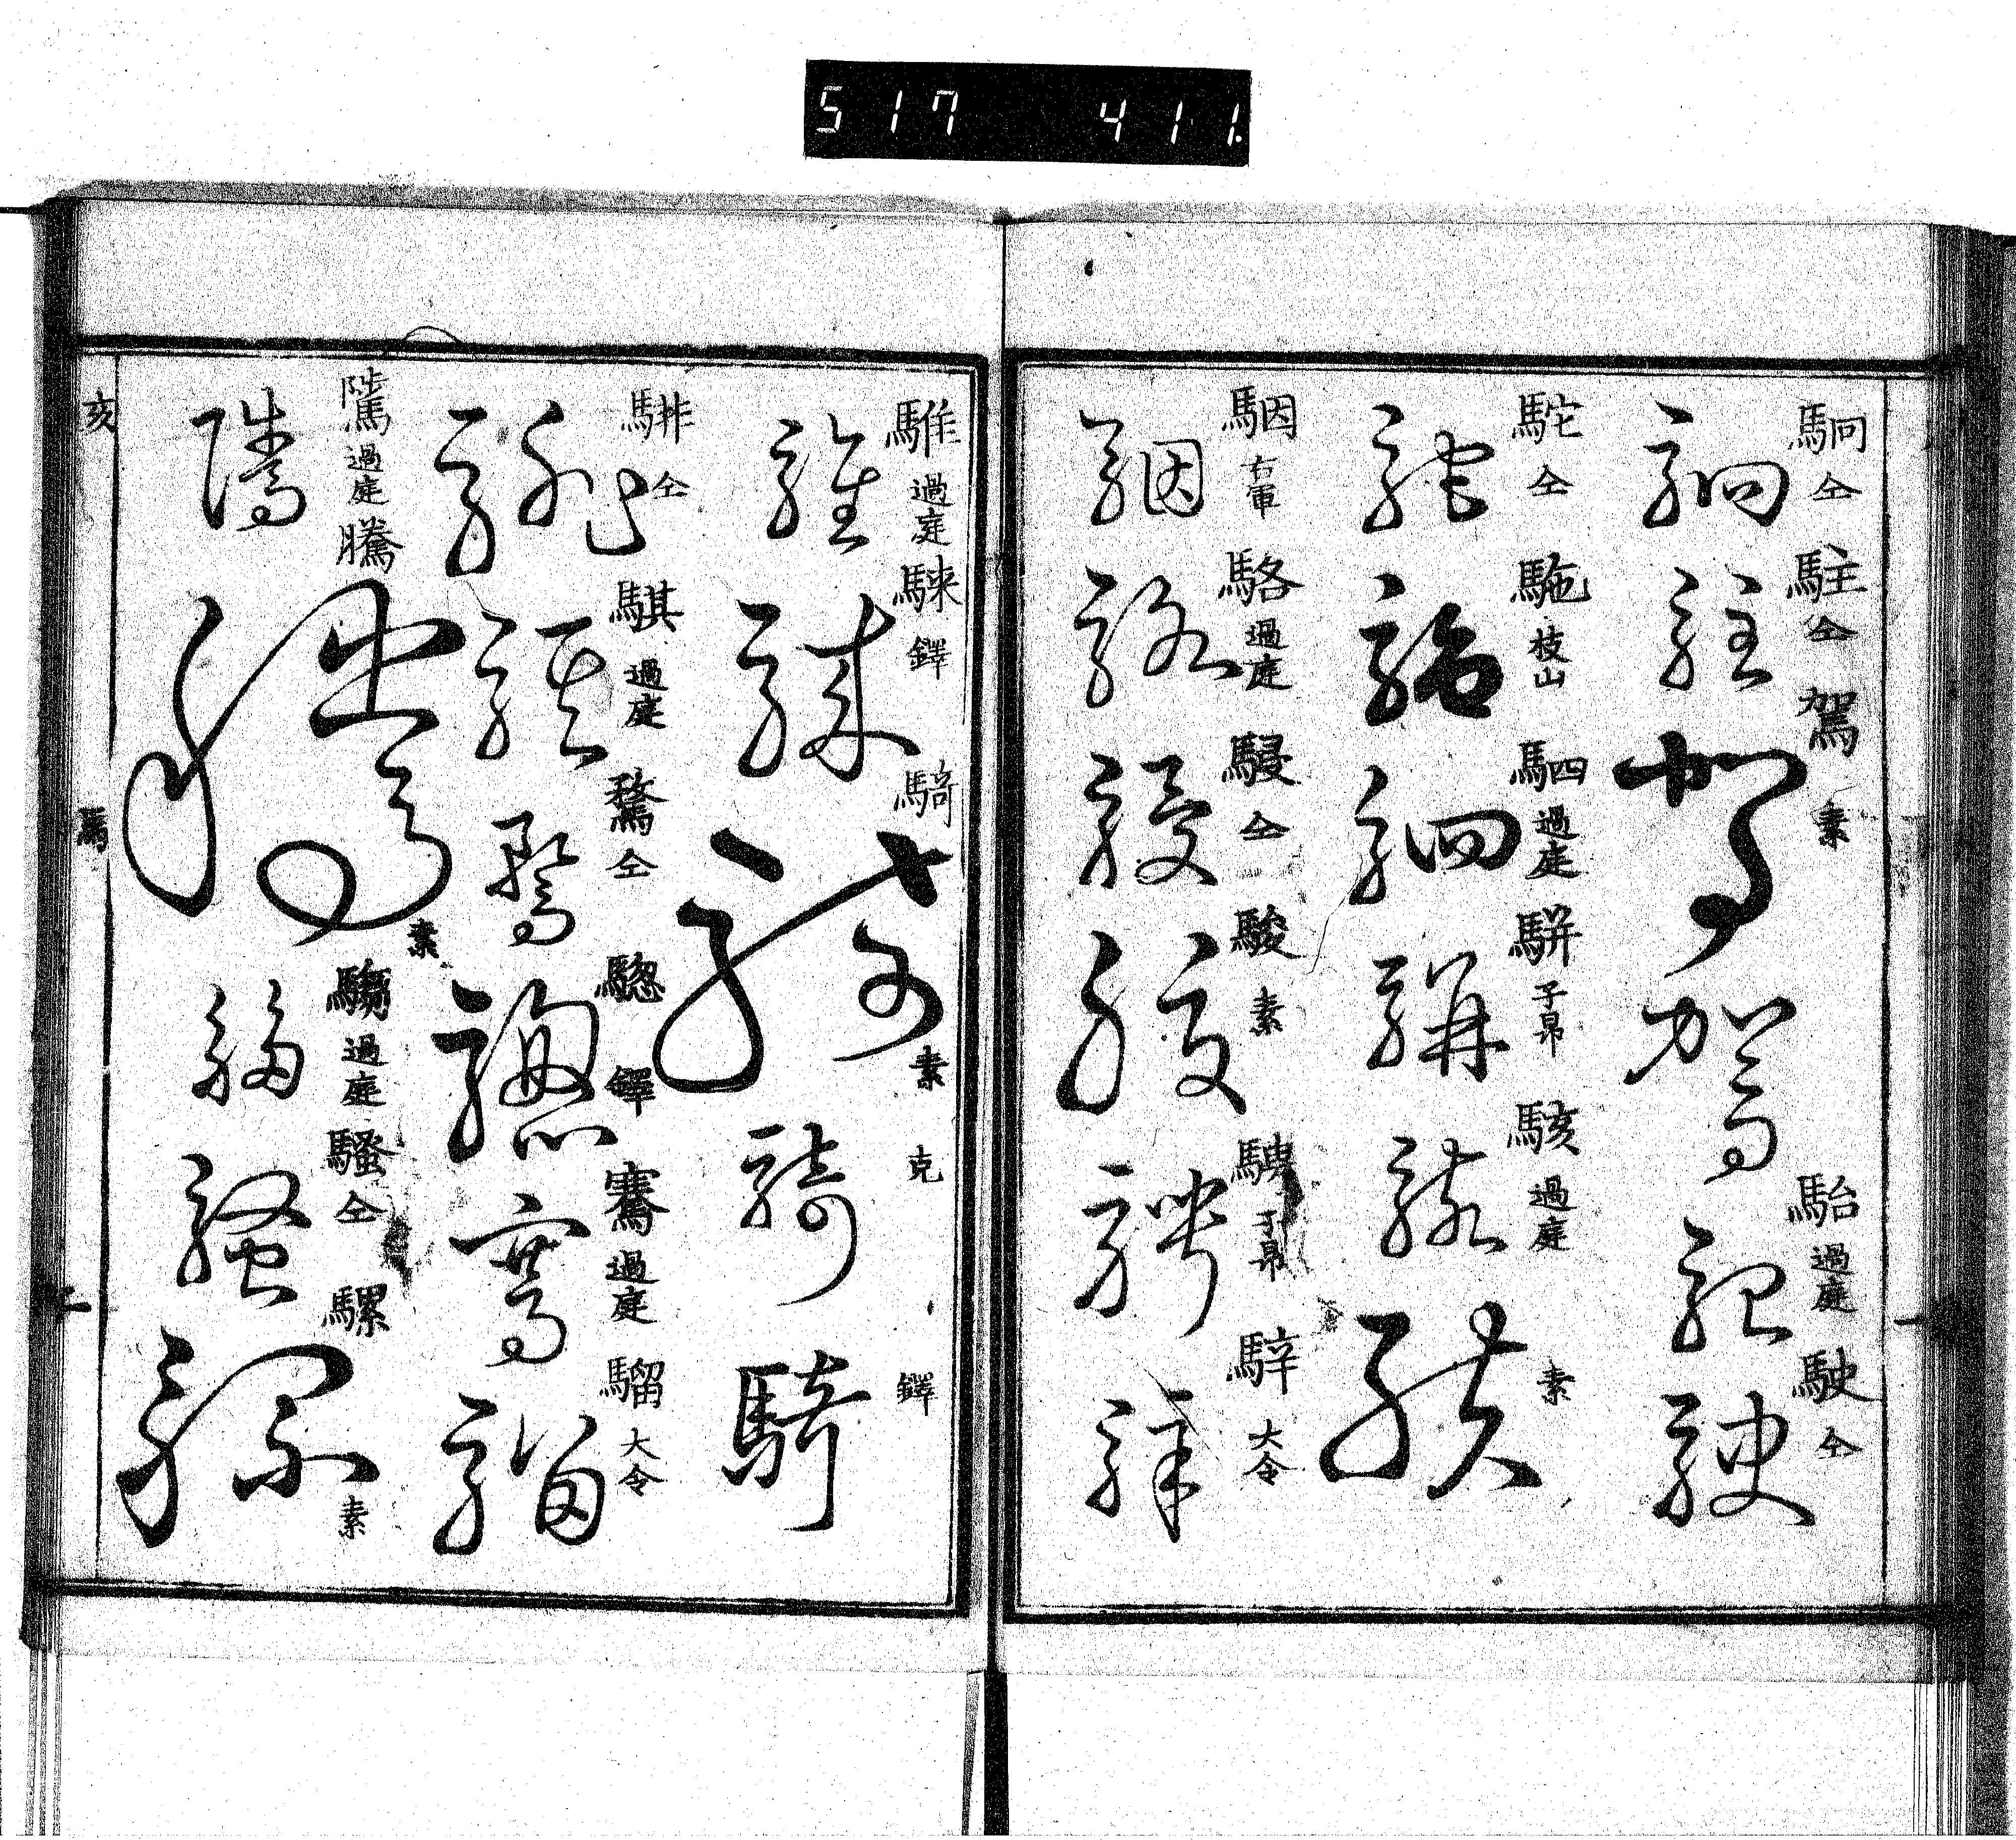 517 411.
駉仝駐仝駕素駘過庭駛仝
駝仝駞枝山駟過庭駢子昂駭過庭素
駰右軍駱過庭駸仝駿素騁子昂騂大令
騅過庭騋鐸騎素克鐸
騑仝騏過庭騖仝騘鐸騫過庭騮大令
騭過庭騰素騶過庭騷仝騾素
亥 馬